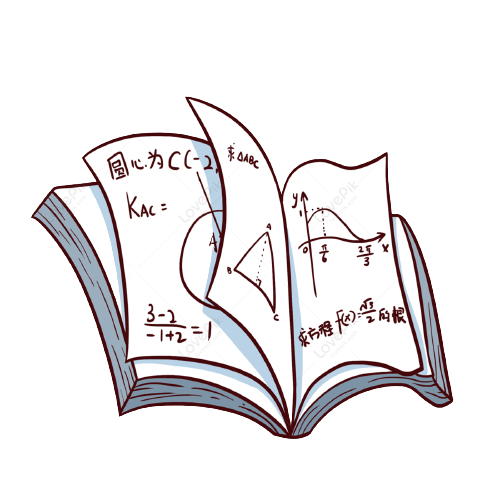 圆心为C(-2,
KAC=
A
3-2
-1+2 =1
求△ABC
A
B
C
y
1
0
π/6
2π/3
x
求方程f(x)=√3/2的根